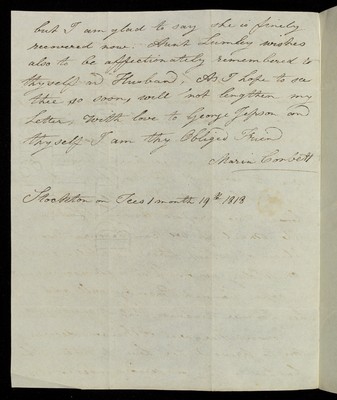 but I am glad to say she is finely
recovered now. Aunt Lumley wishes
also to be affectionately remembered to
thyself nd Husband, As I hope to see
thee so soon, will not lengthen my
Letter, With love to George Jepson and
thyself I am thy Obliged Friend
Maria Corbett
Stockton on Tees 1 month 19th 1818